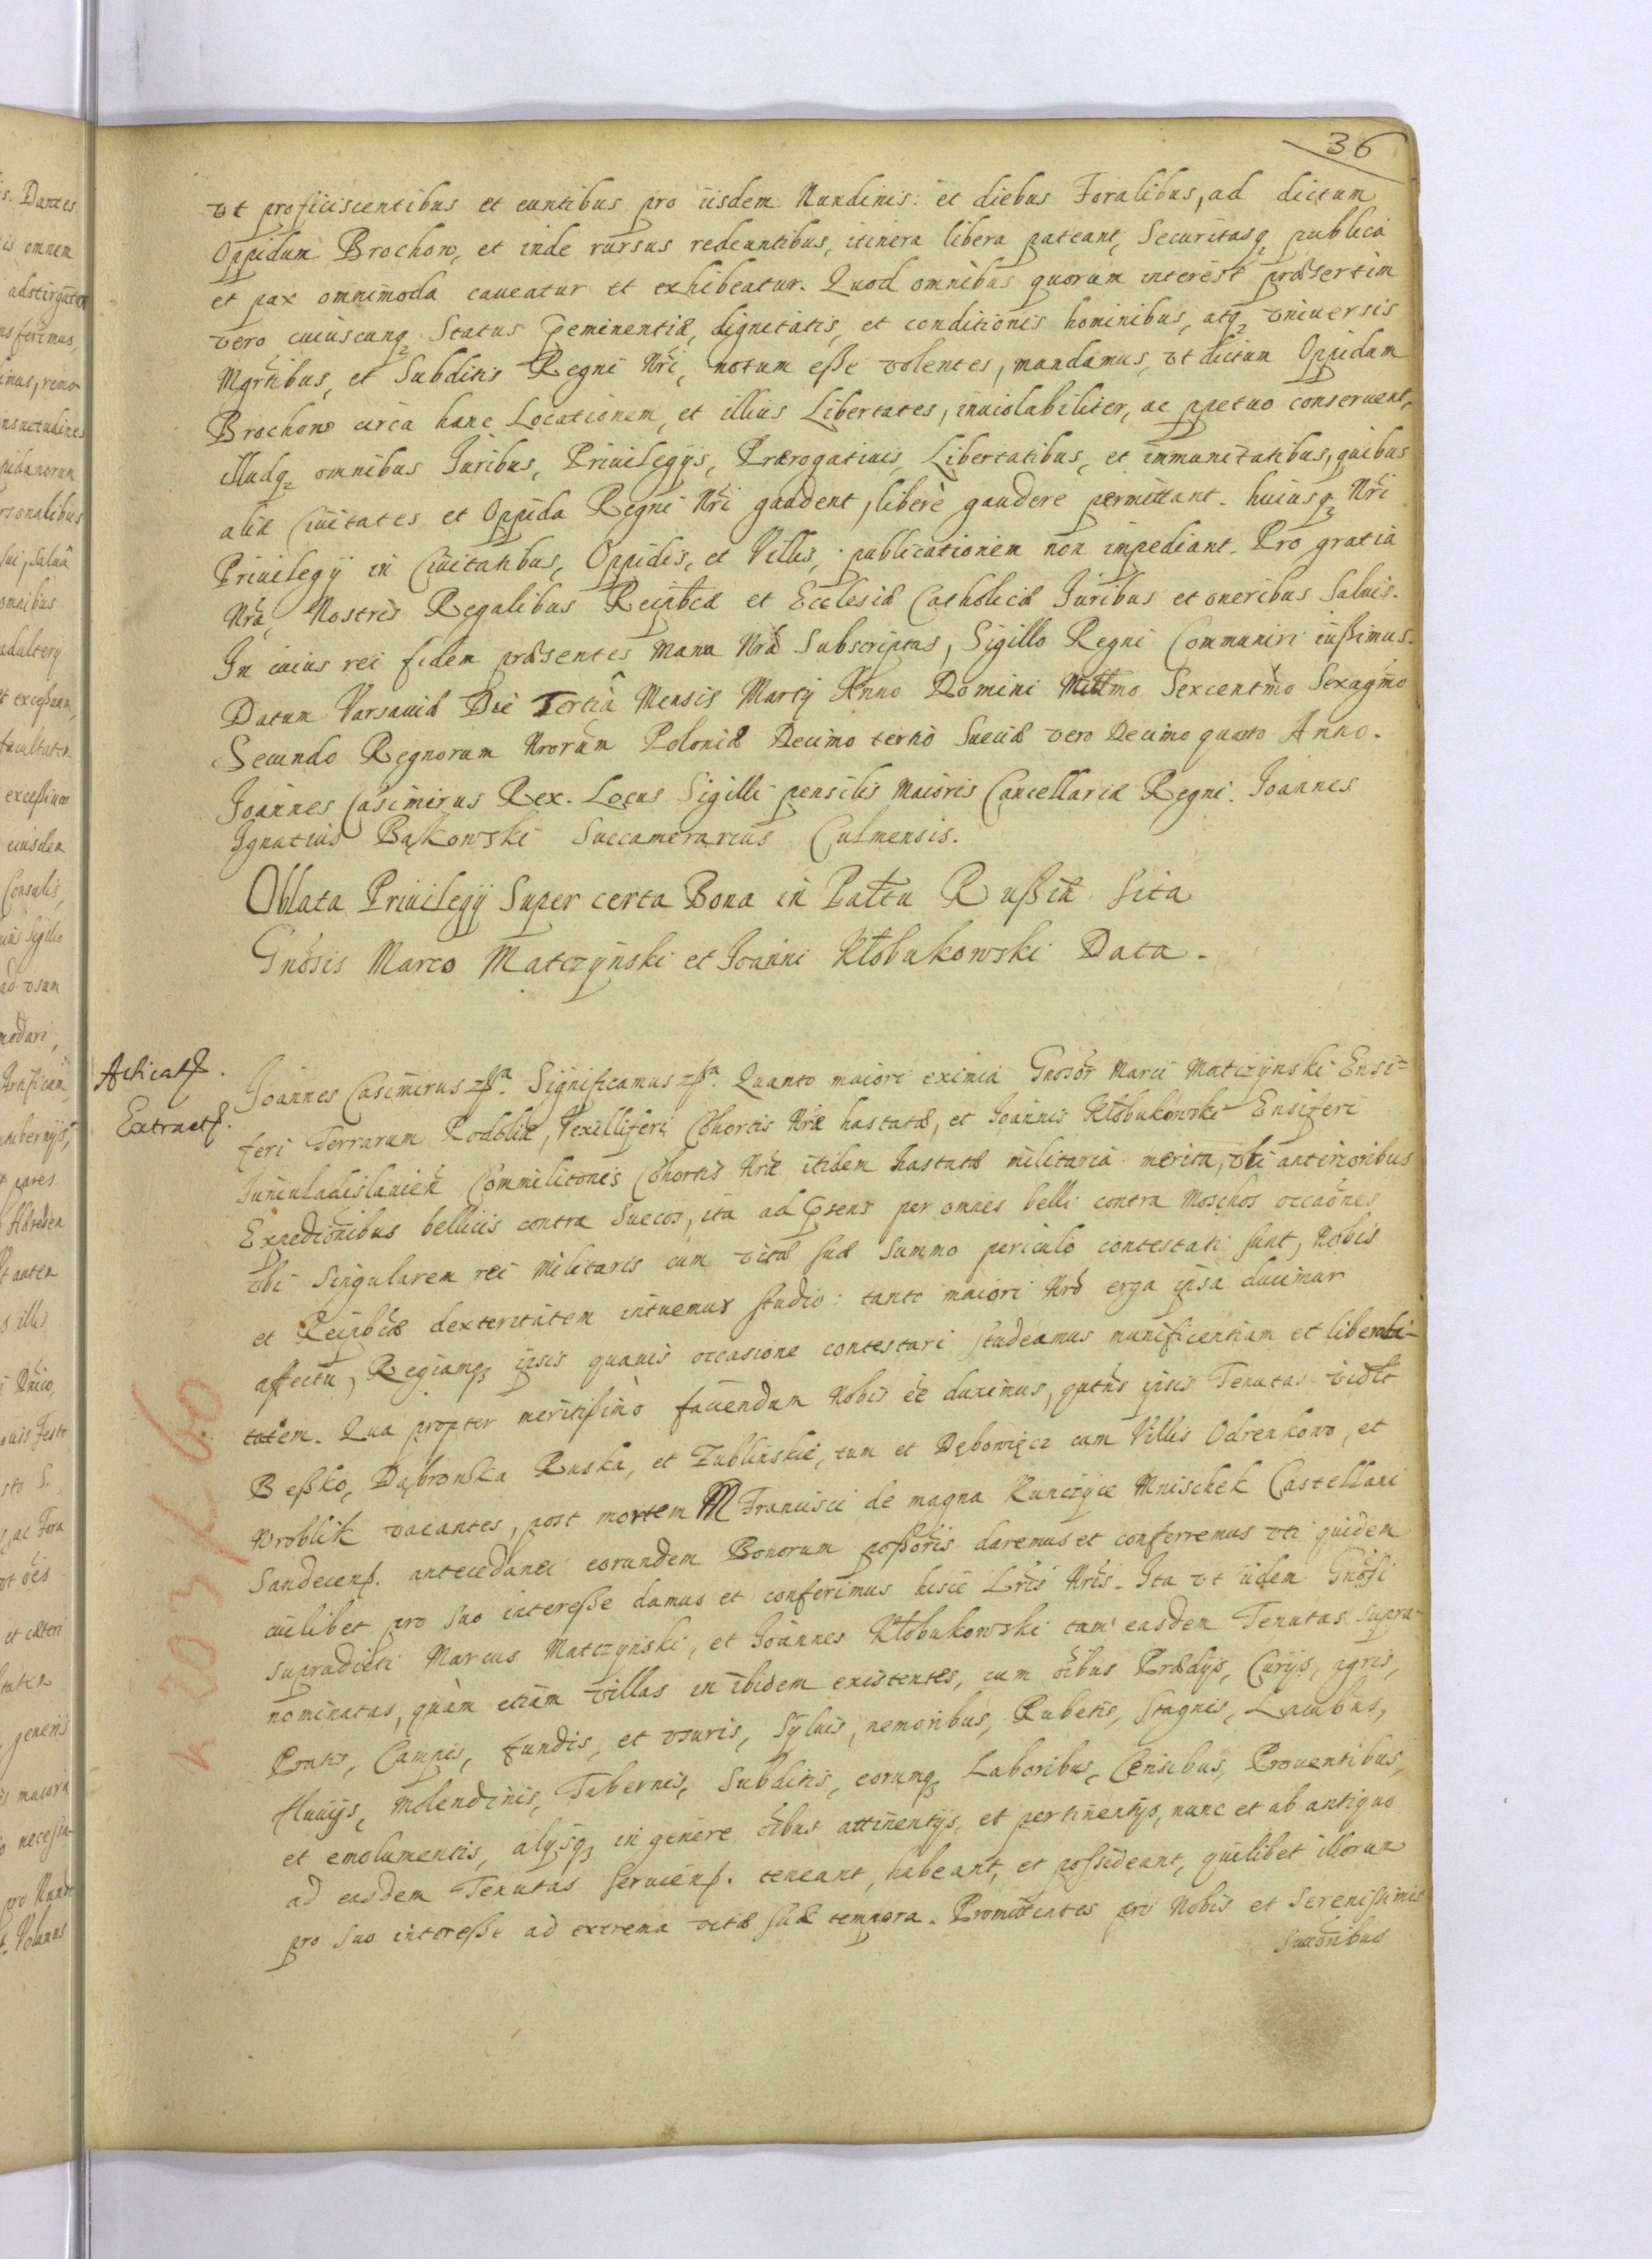 36
vt proficiscentibus et euntibus pro iisdem Nundinis: et diebus Foralibus, ad dictum
Oppidum Brochow, et inde rursus redeuntibus, itinera libera pateant, Securitasq publica
et pax omnimoda caveatur et exhibeatur. Quod omnibus quorum interest præsertim
vero cuiuscunq Status Pęminentiæ, dignitatis, et conditionis hominibus, atq vniuersis
Mgrtibus, et Subditis Regni Nri, notum eße volentes, mandamus, vt dictum Oppidum
Brochow circa hanc Locationem, et illius Libertates, inuiolabiliter, ac ppetuo conseruent,
illudq omnibus Iuribus, Priuilegijs, Prærogatiuis, Libertatibus, et immunitatibus, quibus
aliæ Ciuitates et Oppida Regni Nri gaudent, liberè gaudere permittant. huiusq Nri
Priuilegij in Ciuitatibus, Oppidis, et Villis, publicationem non impediant. Pro gratia
Nra, Nostris Regalibus Reipbcæ et Ecclesiæ Catholicæ Iuribus et oneribus Saluis.
In cuius rei fidem præsentes Manu Nra Subscriptas, Sigillo Regni Communiri iußimus.
Datum Varsauiæ Die Tertiâ Mensis Martij Anno Domini Millmo Sexcentmo Sexagmo
Secundo Regnorum Nrorum Poloniæ Decimo tertio Sueciæ vero Decimo quarto Anno.
Joannes Casimirus Rex. Locus Sigilli pensilis Maioris Cancellariæ Regni. Joannes
Ignatius Bąkowski Succamerarius Culmensis.
Oblata Priuilegij Super certa Bona in Paltu Rußiæ Sita
Gnosis Marco Matczyński et Joanni Kłobukowski Data.
Acticat.
Extract.
Joannes Casimirus Significamus Quanto maiori eximia Gnosor Marci Matczynski Ensi=
feri Terrarum Podoliæ, Vexilliferi Cohortis Nræ hastatæ, et Joannis Kłobukowski Ensiferi
Iuniuladislauien Commilitonis Cohortis Nræ itidem hastatæ militaria merita, vti anterioribus
Expedionibus bellicis contra Suecos, ita ad psens per omnes belli contra Moschos occaones
vbi Singularem rei Militaris cum vitæ suæ Summo periculo contestati sunt, Nobis
et Reipbcæ dexteritatem intuemur studio: tanto maiori Nro erga ipsa ducimur
affectu, Regiamq ipsis quauis occasione contestari studeamus munificentiam et liberali-
tatem. Qua propter meritißimo fauendum Nobis ee duximus, qutus ipsis Tenutas vidlt
Beßko, Dąbrowka Ruska, et Zubliński, tum et Dębowięcz cum Villis Odrenkowo, et
Wroblik vacantes, post mortem M Francisci de magna Kunczyce Mnischek Castellani
Sandecens. antecedanei eorundem Bonorum possoris daremus et conferremus vti quidem
cuilibet pro Suo intereße damus et conferimus hisce Lris Nris. Ita vt iidem Gnosi
supradicti Marcus Matczyński, et Joannes Kłobukowski tam easdem Tenutas supra-
nominatas, quàm etiam villas in ibidem existentes, cum oibus Prædijs, Curijs, agris,
Pratis, Campis, fundis, et vsuris, Syluis, nemoribus, Rubetis, Stagnis, Lacubus,
fluuijs, Molendinis, Tabernis, Subditis, eorumq Laboribus, Censibus, Prouentibus,
et emolumentis, alijsq in genere oibus attinentijs, et pertinentijs, nunc et ab antiquo
ad easdem Tenutas Seruiens. teneant, habeant, et poßideant, quilibet illorum
pro Suo intereße ad extrema vitæ suæ tempora. Promittentes pro Nobis et Serenißimis
Succoribus